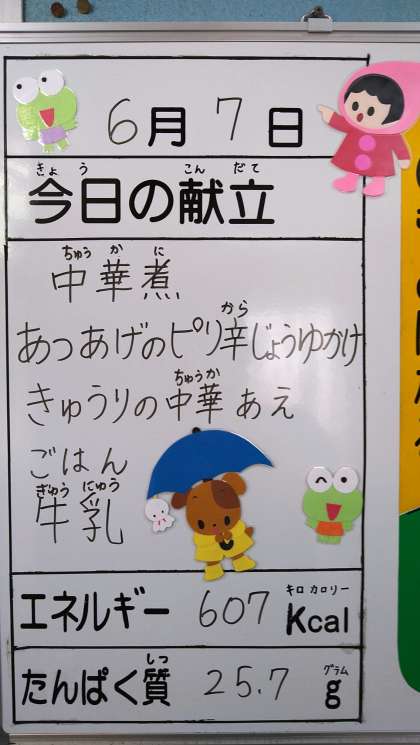 6月7日
きょう こん だて
今日の献立
ちゅう か に
中華煮
から
あつあげのピリ辛じょうゆかけ
ちゅうか
きゅうりの中華あえ
ごはん
ぎゅう にゅう
牛乳
キロ カロリー
エネルギー 607 Kcal
しつ グラム
たんぱく質 25.7 g